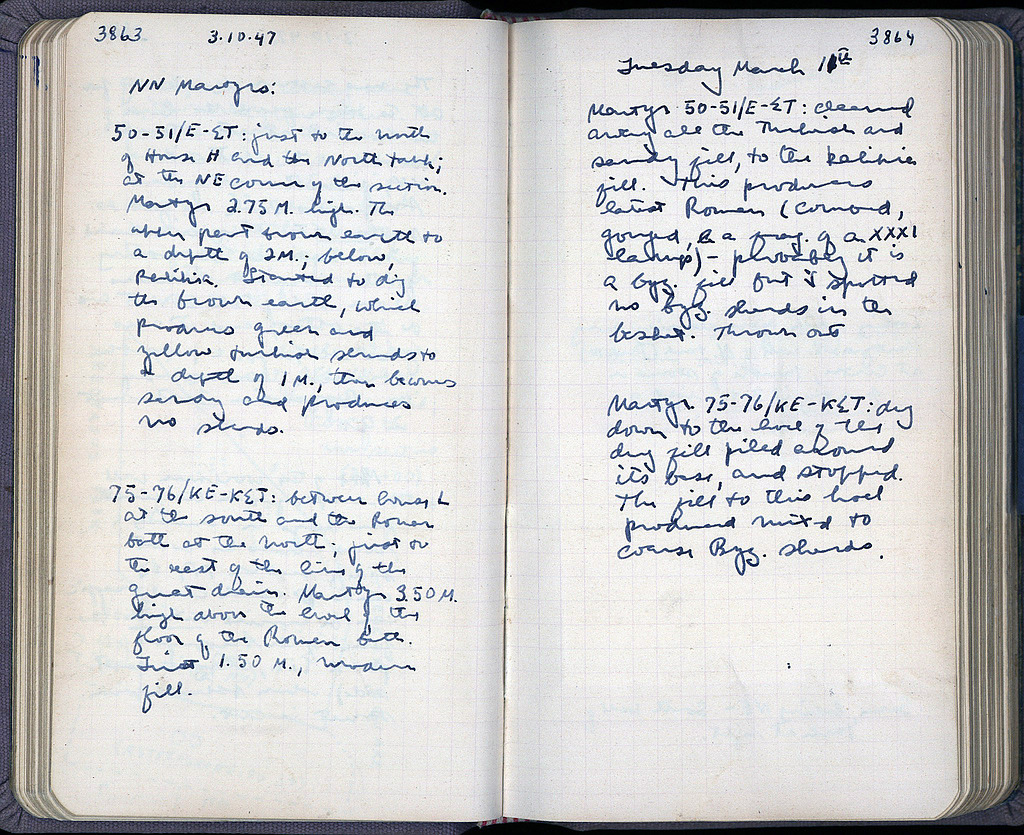 3863 3.10.47
NN Martyrs:
50-51/E-ΣΤ: just to the north
of House H and the North
at the NE corner of the section.
Martyr 2.75 M. high. The
upper part brown earth to
a depth of 2M.; below,
Started to dig
the brown earth, which
produces green and
yellow turkish sherds to
a depth of 1 M., then becomes
sandy and produces
no sherds.
75-76/ΚΕ-ΚΣΤ: between house L
at the south and the Roman
bath at the north; just to
the west of the line of the
great drain. Martyr 3.50 M.
high above the level of the
floor of the Roman bath.
First 1.50 M., modern
fill.
3864
Tuesday March 11th
Martyr 50-51/E-ΣΤ: cleared
away all the Turkish and
sandy fill, to the
fill. This produces
latest Roman (combed,
gouged, & a frag. of a XXXI
lamp) - probably it is
a byz. fill but I spotted
no byz. sherds in the
basket. Thrown out
Martyr 75-76/ΚΕ-ΚΣΤ: dig
down to the level of the
dug fill piled around
its base, and stopped.
The fill to this level
produced mixed to
coarse Byz. sherds.